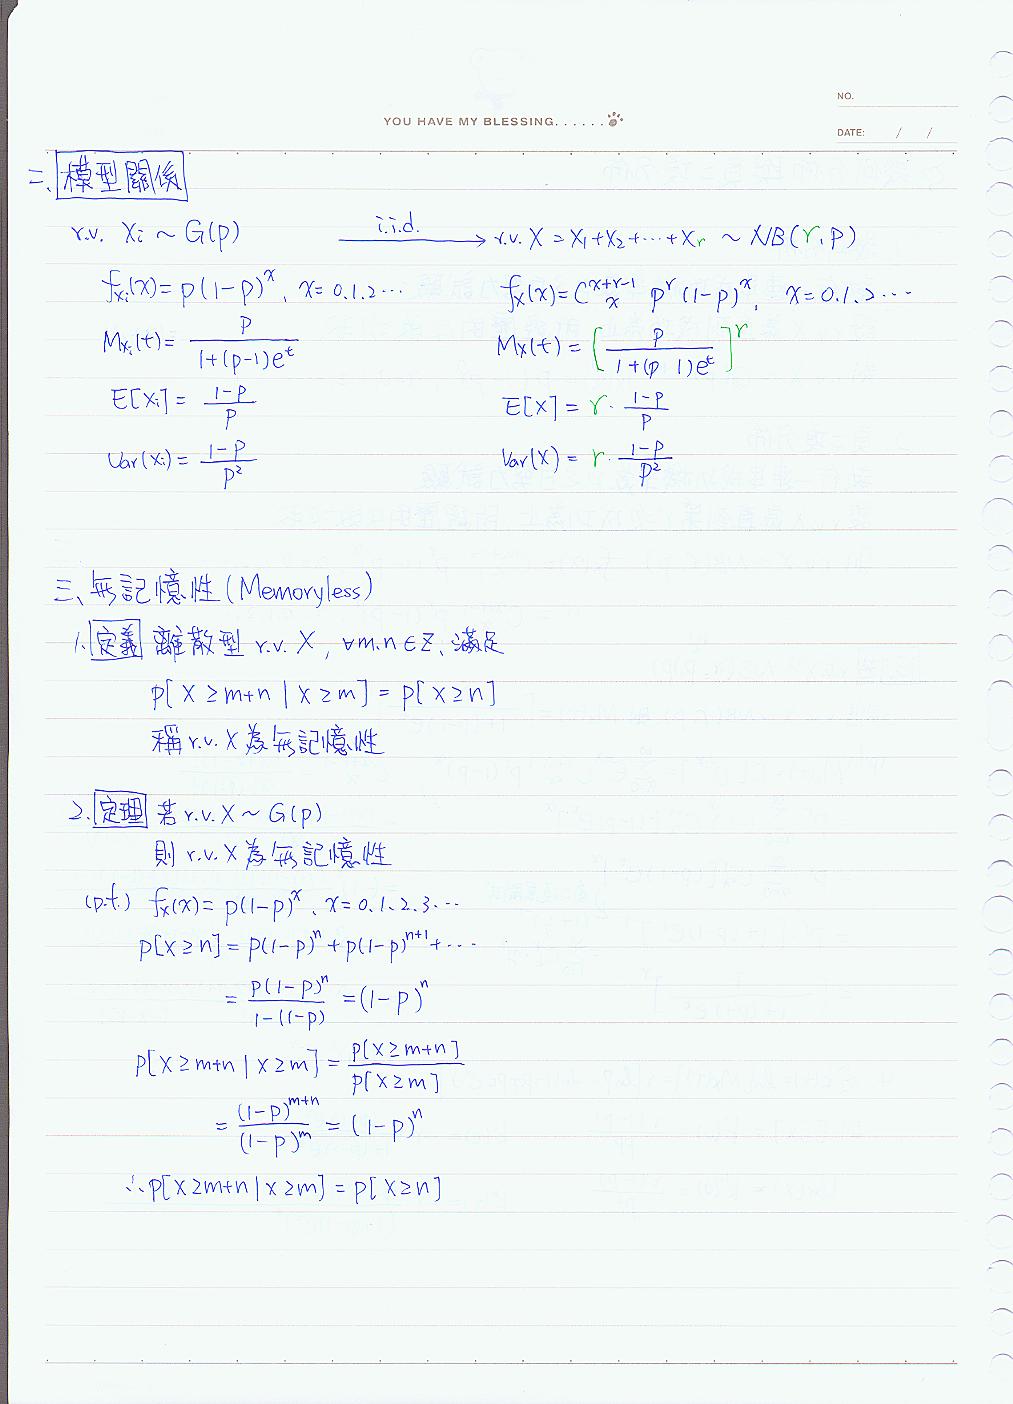 NO.
YOU HAVE MY BLESSING......
DATE: / /
二、模型關係
r.v. Xi ~ G(p) i.i.d. → r.v. X = X1+X2+⋯+Xr ~ NB(r,p)
fXi(x) = p(1-p)^x, x=0.1.2⋯ fX(x) = C^{x+r-1}_x p^r (1-p)^x, x=0.1.2⋯
MXi(t) = p / (1+(p-1)e^t) MX(t) = [p / (1+(p 1)e^t)]^r
E[Xi] = (1-p)/p E[X] = r · (1-p)/p
Var(Xi) = (1-p)/p² Var(X) = r · (1-p)/p²
三、無記憶性(Memoryless)
1. 定義 離散型 r.v. X, ∀m.n∈Z, 滿足
P[X≥m+n | X≥m] = P[X≥n]
稱 r.v. X 為無記憶性
2. 定理 若 r.v. X ~ G(p)
則 r.v. X 為無記憶性
(p.f.) fX(x) = p(1-p)^x, x=0.1.2.3⋯
P[X≥n] = p(1-p)^n + p(1-p)^{n+1} + ⋯
= p(1-p)^n / 1-(1-p) = (1-p)^n
P[X≥m+n | X≥m] = P[X≥m+n] / P[X≥m]
= (1-p)^{m+n} / (1-p)^m = (1-p)^n
∴ P[X≥m+n | X≥m] = P[X≥n]